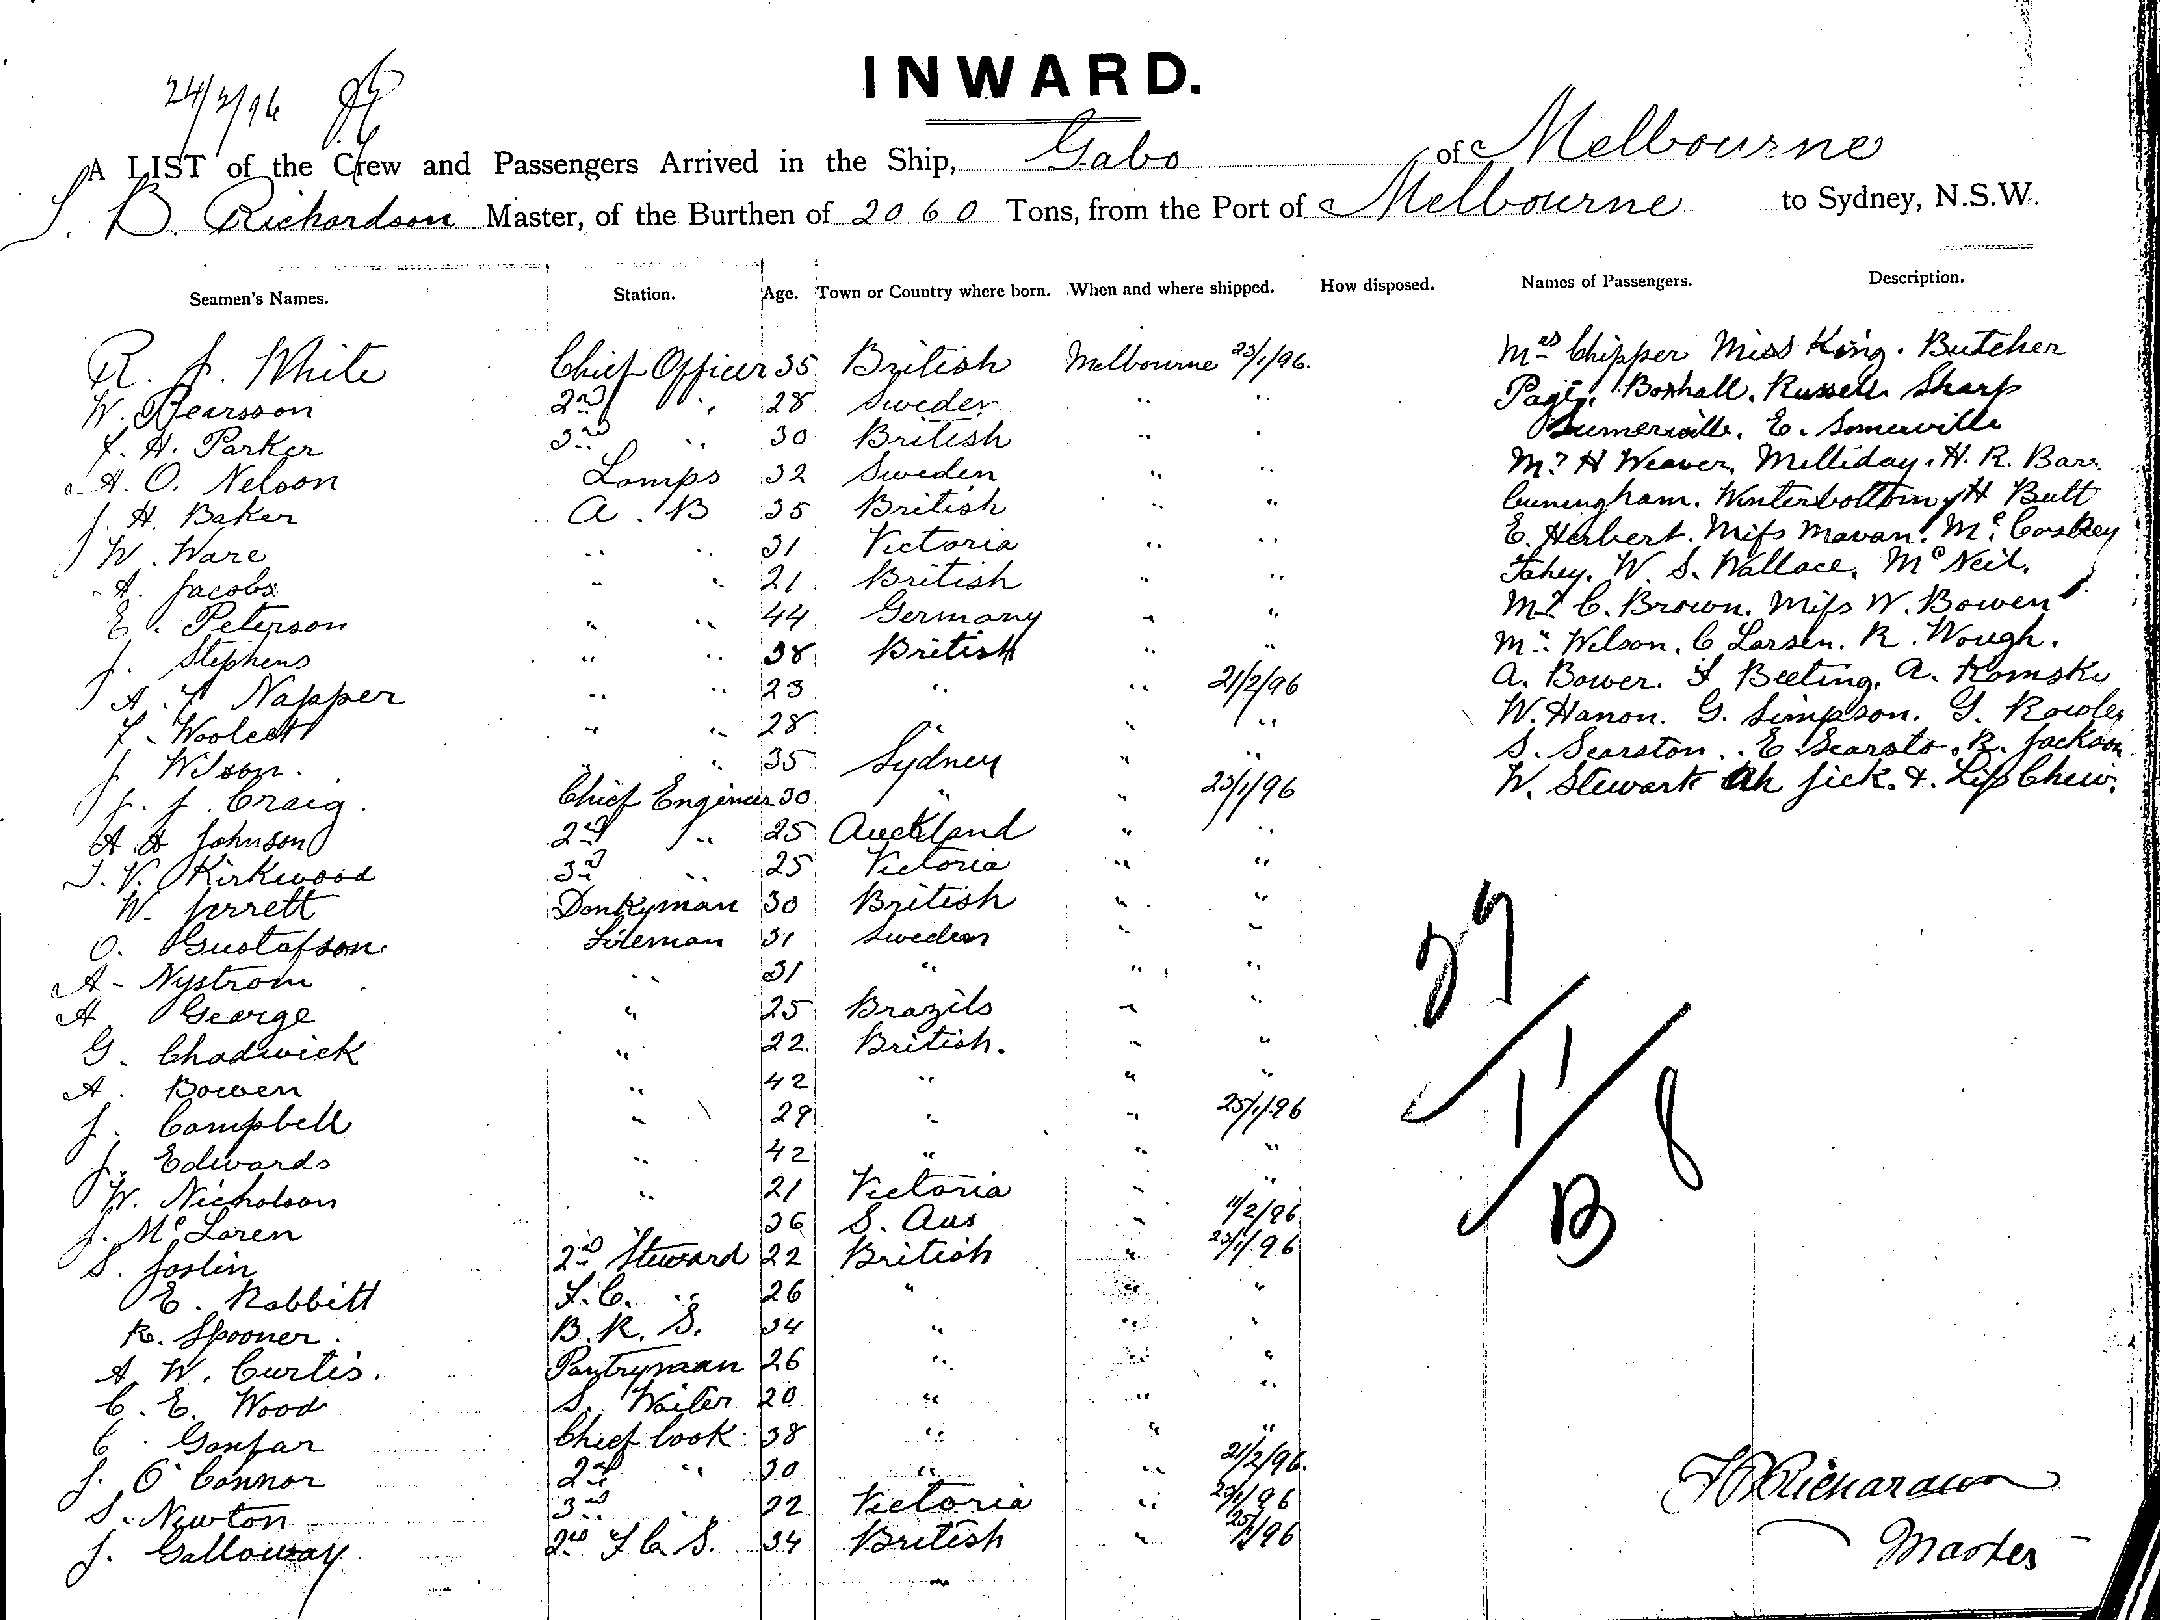 INWARD.
24/2/96
A LIST of the Crew and Passengers Arrived in the Ship, Gabo of Melbourne
B. Richardson Master, of the Burthen of 2060 Tons, from the Port of Melbourne to Sydney, N.S.W.
Seamen's Names. Station. Age. Town or Country where born. When and where shipped. How disposed. Names of Passengers. Description.
R. J. White Chief Officer 35 British Melbourne 23/1/96. Mrs Chipper Miss King. Butcher
W. Pearsson 2nd " 28 Sweden " " Page, Boxhall. Russell. Sharp
F. H. Parker 3rd " 30 British " " Sumerville. E. Somerville
A. O. Nelson Lamps 32 Sweden " " Mr H Weaver, Milliday. H. R. Barr
J. H. Baker A. B 35 British " " Cuningham. Winterbottom, H Butt
W. Ware " " 31 Victoria " " E. Herbert. Miss Mavan. Mc Coskey
A. Jacobs " " 21 British " " Fahey. W. S. Wallace. Mc Neil.
E. Peterson " " 44 Germany " " Mr C. Brown. Miss W. Bowen
J. Stephens " " 38 British " " Wilson. C Larsen. R. Wough.
A. F Napper " " 23 " " 21/2/96 A. Bower. Beeting. A. Romski
F. Woolcott " " 28 " " " W. Hanon. G. Simpson. G. Rowles
J. Wilson. " " 35 Sydney " " S. Searston. E Searsto. R. Jackson
J. J. Craig. Chief Engineer 30 " " 23/1/96 W. Stewart Ah Jick. & Lip Chew.
A A Johnson 2nd " 25 Auckland " "
J. V. Kirkwood 3rd " 25 Victoria " "
W. Jerrett Donkyman 30 British " "
O. Gustafson. Fireman 31 Sweden " "
A. Nystrom " 31 " " "
A George " 25 Brazils " "
G. Chadwick " 22 British. " "
A. Bowen " 42 " " "
J. Campbell " 29 " " 25/1/96
J. Edwards " 42 " " "
W. Nicholson " 21 Victoria " "
J. Mc Laren 36 S. Aus " 11/2/96
S. Joslin 2nd Steward 22 British " 23/1/96
E. Rabbitt F.C. " 26 " " "
R. Spooner. B. R. S. 34 " " "
A W. Curtis. Pantryman 26 " " "
C. E. Wood S. Waiter 20 " " "
C. Chief Cook 38 " " "
J. O'Connor 2nd " 30 " " 21/2/96.
S. Newton 3rd " 22 Victoria " 23/1/96
J. Galloway 2nd F C S. 34 British " 96
Richardson
Master